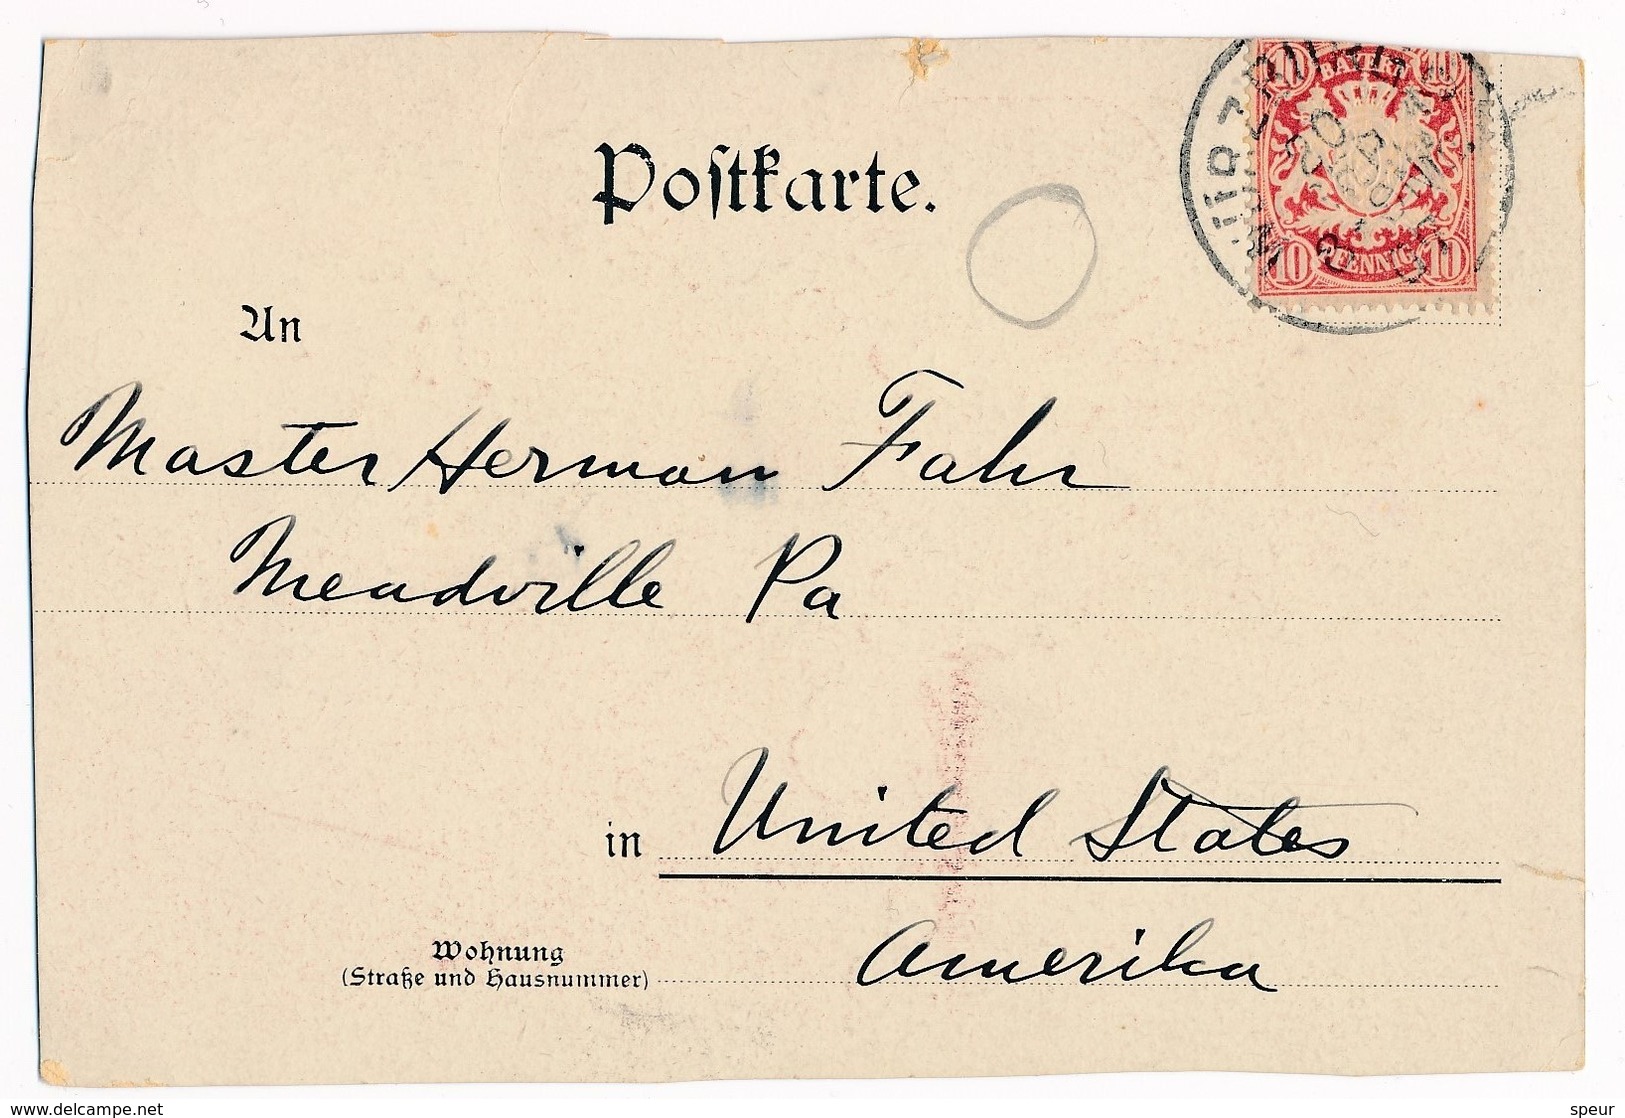 Postkarte.
WÜRZBURG
10 BAYERN 10
10 PFENNIG 10
An
Master Herman Fahr
Meadville Pa
in United States
Wohnung
(Straße und Hausnummer) Amerika
www.delcampe.net
speur